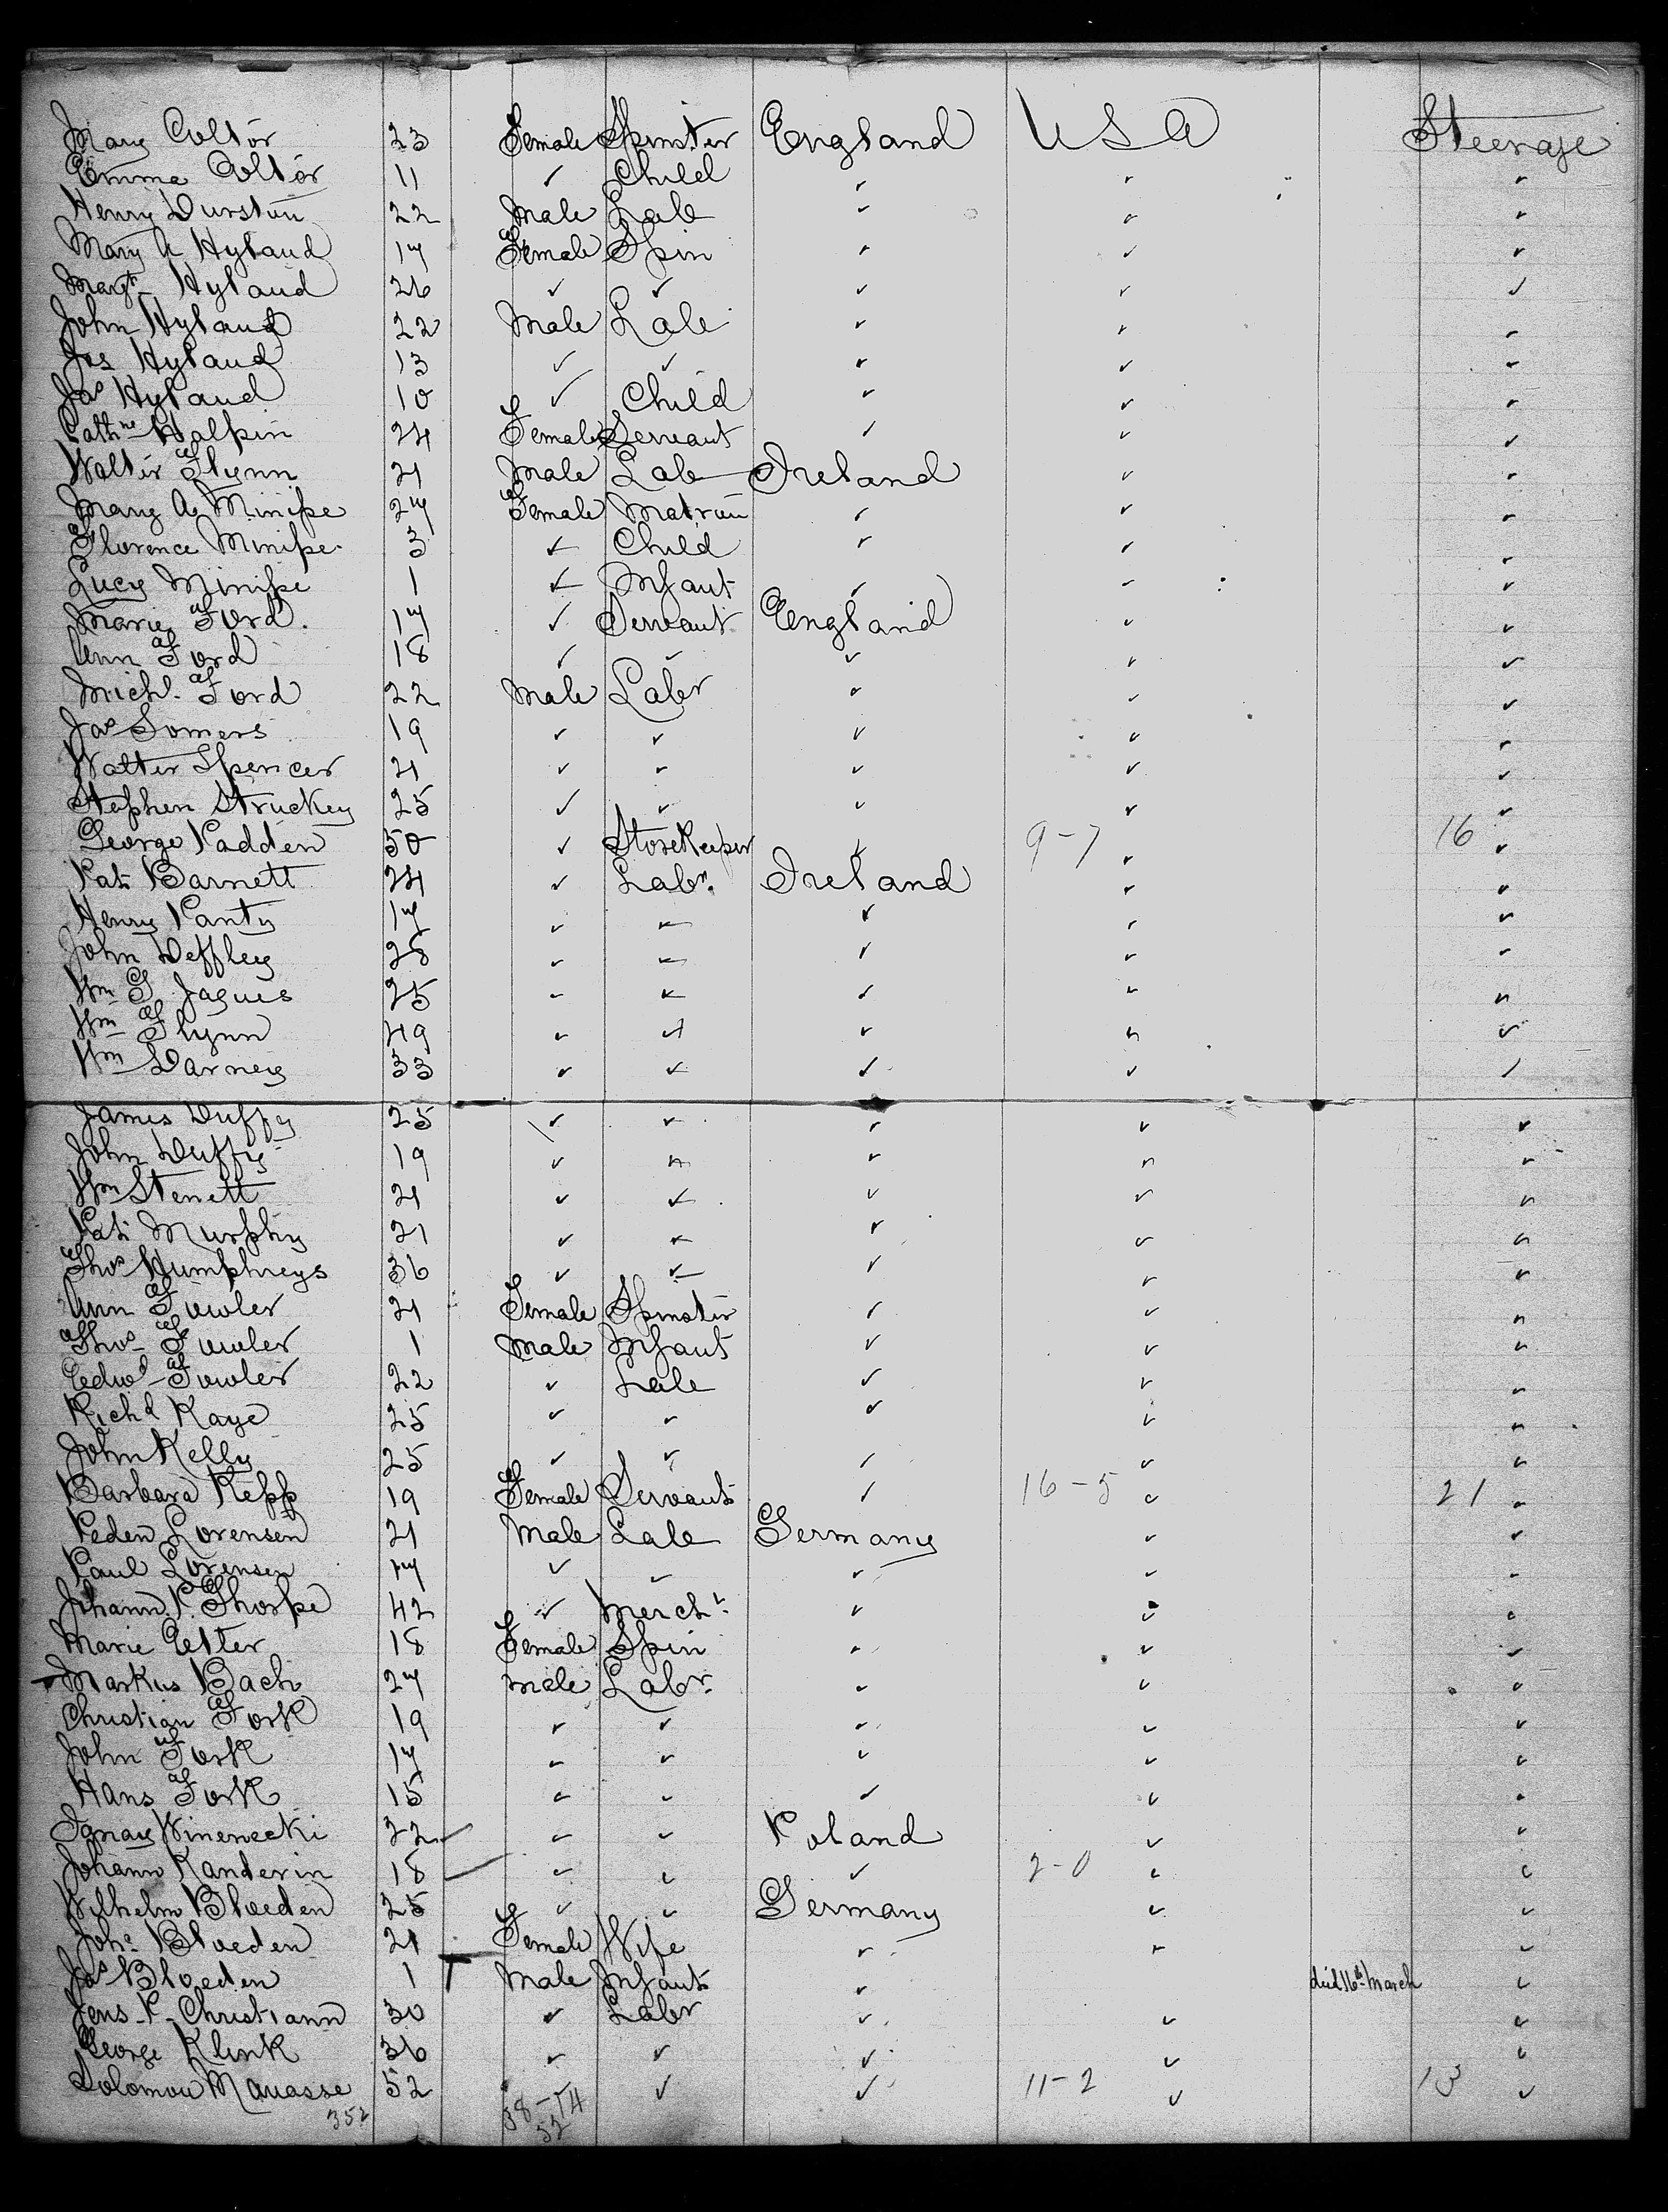 Mary Coltor 23 Female Spinster England USA Steerage
Emma Coltor 11 ✓ Child ✓ ✓ ✓
Henry Durston 22 Male Lab ✓ ✓ ✓
Mary A Hyland 17 Female Spin ✓ ✓ ✓
Margt Hyland 26 ✓ ✓ ✓ ✓ ✓
John Hyland 22 Male Lab ✓ ✓ ✓
Jos Hyland 13 ✓ ✓ ✓ ✓ ✓
Jas Hyland 10 ✓ Child ✓ ✓ ✓
Cathne Halpin 24 Female Servant ✓ ✓ ✓
Walter Flynn 21 Male Lab Ireland ✓ ✓
Mary A Minipe 27 Female Matron ✓ ✓ ✓
Florence Minipe 3 ✓ Child ✓ ✓ ✓
Lucy Minipe 1 ✓ Infant ✓ ✓ ✓
Marie Ford. 17 ✓ Servant England ✓ ✓
Ann Ford 18 ✓ ✓ ✓ ✓ ✓
Michl. Ford 22 Male Labr ✓ ✓ ✓
Jas Somers 19 ✓ ✓ ✓ ✓ ✓
Walter Spencer 21 ✓ ✓ ✓ ✓ ✓
Stephen Struckey 25 ✓ ✓ ✓ ✓ ✓
George Padden 50 ✓ Storekeeper ✓ 9-7 ✓ 16 ✓
Pat Barnett 24 ✓ Labr. Ireland ✓ ✓
Henry Panty 17 ✓ ✓ ✓ ✓ ✓
John Deffley 28 ✓ ✓ ✓ ✓ ✓
Wm G Jaques 25 ✓ ✓ ✓ ✓ ✓
Wm Flynn 49 ✓ ✓ ✓ ✓ ✓
Wm Darney 33 ✓ ✓ ✓ ✓ ✓
James Duffy 25 ✓ ✓ ✓ ✓ ✓
John Duffy 19 ✓ ✓ ✓ ✓ ✓
Wm Stenett 21 ✓ ✓ ✓ ✓ ✓
Pat Murphy 21 ✓ ✓ ✓ ✓ ✓
Thos Humphreys 36 ✓ ✓ ✓ ✓ ✓
Ann Fowler 21 Female Spinster ✓ ✓ ✓
Thos Fowler 1 Male Infant ✓ ✓ ✓
Edwd Fowler 22 ✓ Lab ✓ ✓ ✓
Richd Kaye 25 ✓ ✓ ✓ ✓ ✓
John Kelly 25 ✓ ✓ ✓ ✓ ✓
Barbara Kepp 19 Female Servant ✓ 16-5 ✓ 21 ✓
Peden Lorensen 21 Male Lab Germany ✓ ✓
Paul Lorensen 17 ✓ ✓ ✓ ✓ ✓
Johann. P. Thorpe 42 ✓ Mercht. ✓ ✓ ✓
Marie Etter 18 Female Spin ✓ ✓ ✓
Markus Bach 27 Male Labr. ✓ ✓ ✓
Christian Fork 19 ✓ ✓ ✓ ✓ ✓
John Fork 17 ✓ ✓ ✓ ✓ ✓
Hans Fork 15 ✓ ✓ ✓ ✓ ✓
Ignay Winenecki 22 ✓ ✓ Poland ✓ ✓
Johann Kanderin 18 ✓ ✓ ✓ 2-0 ✓ ✓
Wilhelm Bloeden 25 ✓ ✓ Germany ✓ ✓
Johe Bloeden 21 Female Wife ✓ ✓ ✓
Jas Bloeden 1 Male Infant ✓ died 16th March ✓
Jens-P-Christiann 30 ✓ Labr ✓ ✓ ✓
George Klink 36 ✓ ✓ ✓ ✓ ✓
Solomon Manasse 52 ✓ ✓ 11-2 ✓ 13 ✓
352 38-14
52